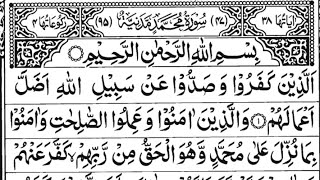 اٰیَاتُهَا ٣٨ (٤٧) سُوْرَةُ مُحَمَّدٍ مَّدَنِیَّةٌ (٩٥) رُكُوْعَاتُهَا ٤
بِسْمِ اللّٰهِ الرَّحْمٰنِ الرَّحِیْمِ
اَلَّذِیْنَ كَفَرُوْا وَصَدُّوْا عَنْ سَبِیْلِ اللّٰهِ اَضَلَّ
اَعْمَالَهُمْ ۝ وَالَّذِیْنَ اٰمَنُوْا وَعَمِلُوا الصّٰلِحٰتِ وَاٰمَنُوْا
بِمَا نُزِّلَ عَلٰی مُحَمَّدٍ وَّهُوَ الْحَقُّ مِنْ رَّبِّهِمْ كَفَّرَ عَنْهُمْ